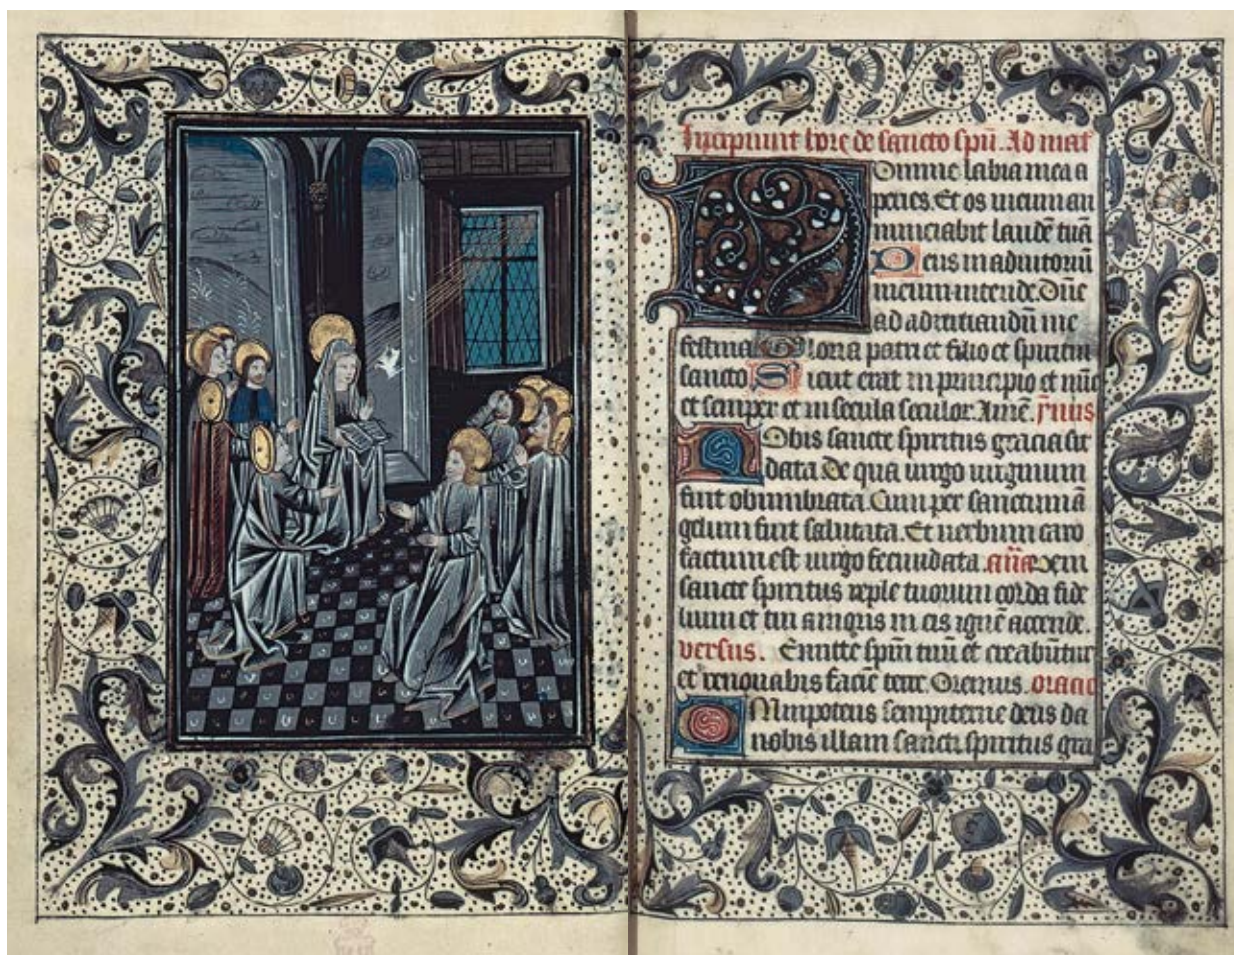 Incipiunt hore de sancto spũ. Ad mať
Domine labia mea a
peries. Et os meum an
nunciabit laudẽ tuã
Deus in adiutoriũ
meum intende. Dñe
ad adiuuandũ me
festina. Gloria patri et filio et spiritui
sancto. Sicut erat in principio et nũc
et semper et in secula seculor. Amẽ.
Nobis sancte spiritus gracia sit
data De qua uirgo uirginum
fuit obumbrata. Cum per sanctum ã
gelum fuit salutata. Et uerbum caro
factum est uirgo fecundata. añа Veni
sancte spiritus reple tuorum corda fide
lium et tui amoris in eis ignẽ accende.
versus. Emitte spũi tuũ et creabũtur
et renouabis faciẽ terre. Oremus. oracio
Omnipotens sempiterne deus da
nobis illam sancti spiritus gra